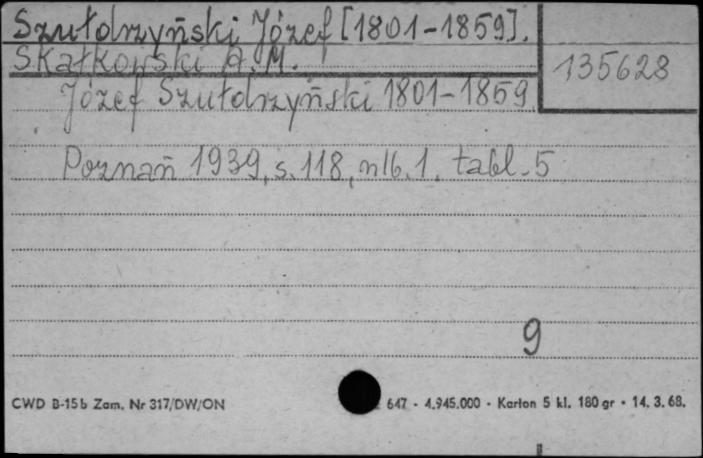 Szułdrzyński Józef [1801-1859].
Skałkowski A. M.
135628
Józef Szułdrzyński 1801-1859
Poznań 1939, s. 118, nlb. 1. tabl. 5
9
CWD B-15b Zam. Nr 317/DW/ON
647 - 4.945.000 - Karton 5 kl. 180 gr - 14. 3. 68.